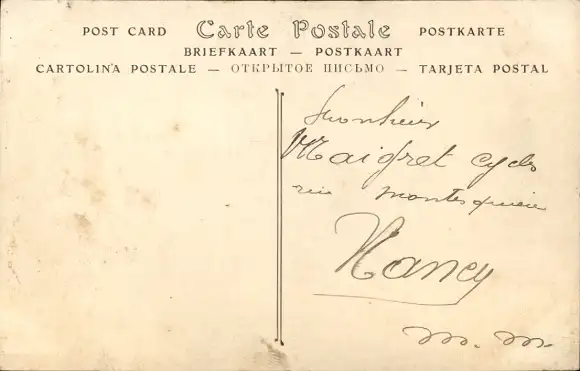 POST CARD Carte Postale POSTKARTE
BRIEFKAART — POSTKAART
CARTOLINA POSTALE — ОТКРЫТОЕ ПИСЬМО — TARJETA POSTAL
Monsieur
Maigret cycles
rue montesquieu
Nancy
M. M.